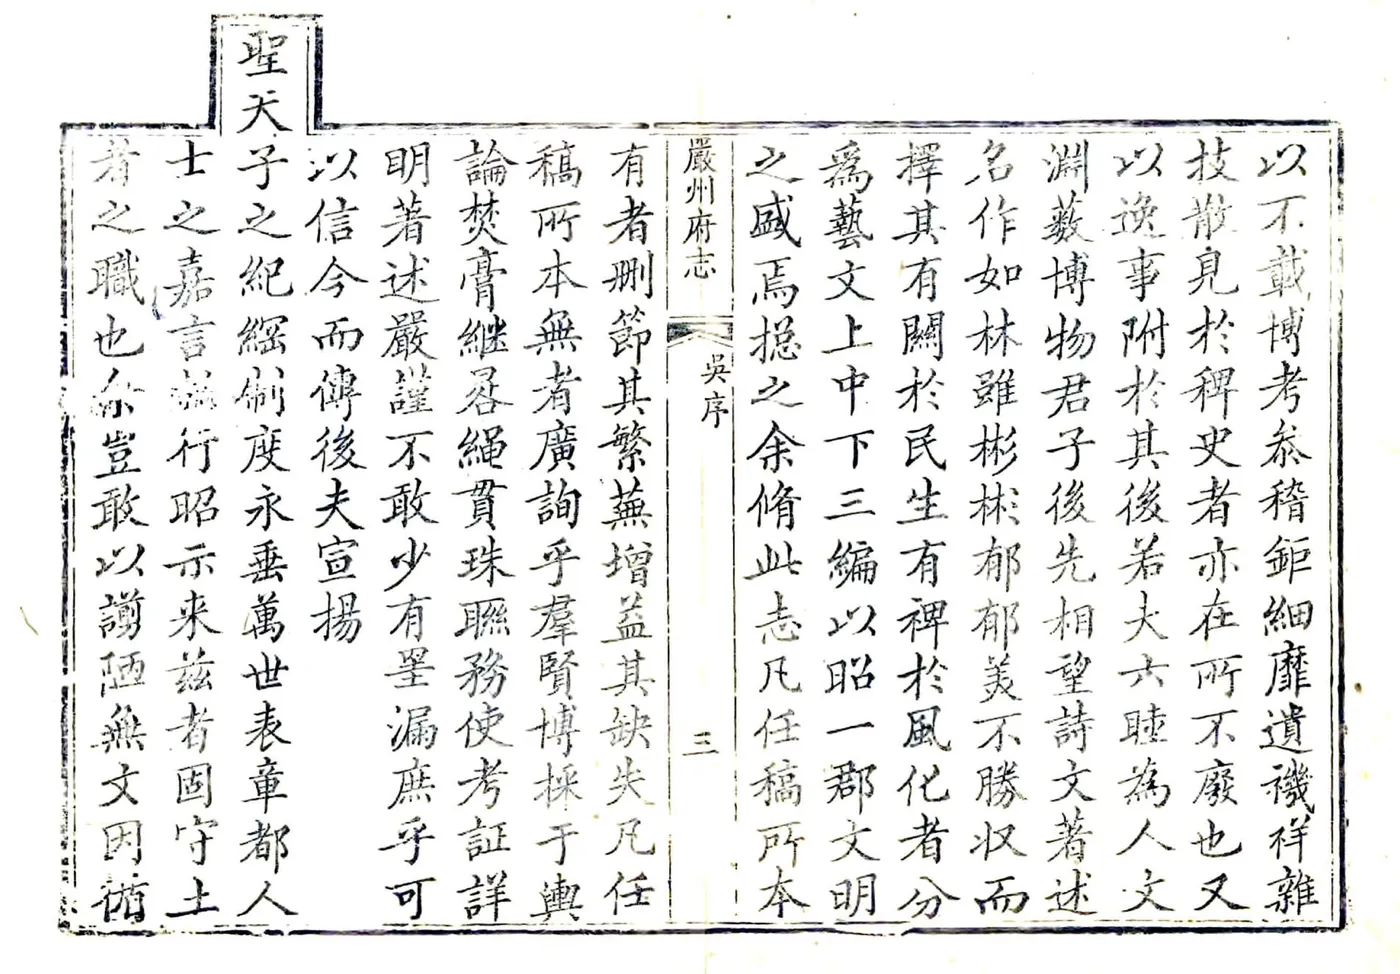 以不載博考叅稽鉅細靡遺禨祥雜
技散見於稗史者亦在所不廢也又
以逸事附於其後若夫六睦為人文
淵藪博物君子後先相望詩文著述
名作如林雖彬彬郁郁美不勝収而
擇其有關於民生有裨於風化者分
爲藝文上中下三編以昭一郡文明
之盛焉揔之余脩此志凡任稿所本
嚴州府志
吳序
三
有者刪節其繁蕪增益其缺失凡任
稿所本無者廣詢乎羣賢博採于輿
論焚膏継晷繩貫珠聮務使考証詳
明著述嚴謹不敢少有墨漏庶乎可
以信今而傳後夫宣揚
聖天子之紀綱制度永垂萬世表章都人
士之嘉言行昭示来兹者固守土
者之職也余豈敢以謭陋無文因循